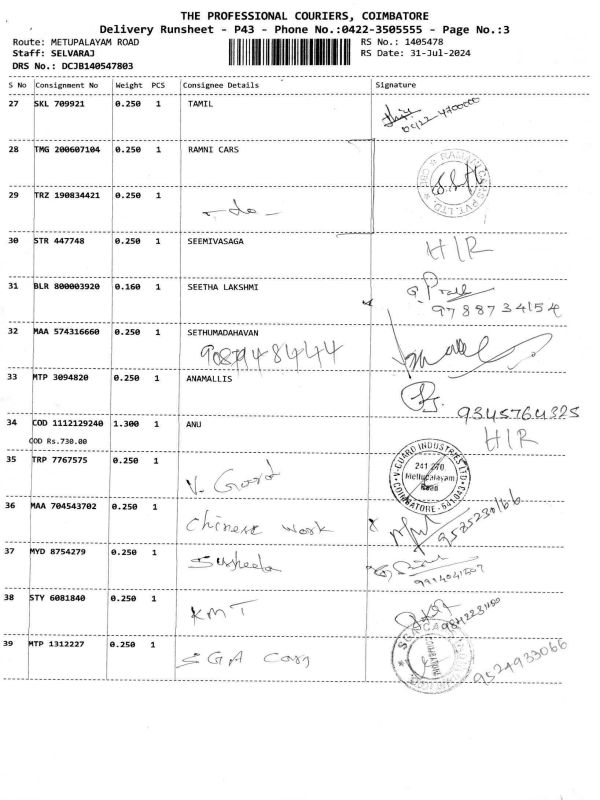 THE PROFESSIONAL COURIERS, COIMBATORE
Delivery Runsheet - P43 - Phone No.:0422-3505555 - Page No.:3
Route: METUPALAYAM ROAD RS No.: 1405478
Staff: SELVARAJ RS Date: 31-Jul-2024
DRS No.: DCJB140547803
S No Consignment No Weight PCS Consignee Details Signature
27 SKL 709921 0.250 1 TAMIL
0422 4700000
28 TMG 200607104 0.250 1 RAMNI CARS
29 TRZ 190834421 0.250 1
- do -
30 STR 447748 0.250 1 SEEMIVASAGA
H/R
31 BLR 800003920 0.160 1 SEETHA LAKSHMI
9788734154
32 MAA 574316660 0.250 1 SETHUMADAHAVAN
9087948444
33 MTP 3094820 0.250 1 ANAMALLIS
9345764325
34 COD 1112129240 1.300 1 ANU
H/R
COD Rs.730.00
35 TRP 7767575 0.250 1
V. Guard
V-GUARD INDUSTRIES LTD
241 270
Mettupalayam
Road
COIMBATORE - 641 043
36 MAA 704543702 0.250 1
Chinese work
37 MYD 8754279 0.250 1
Susheela
38 STY 6081840 0.250 1
KMT
39 MTP 1312227 0.250 1
SGA Cars
9524933066